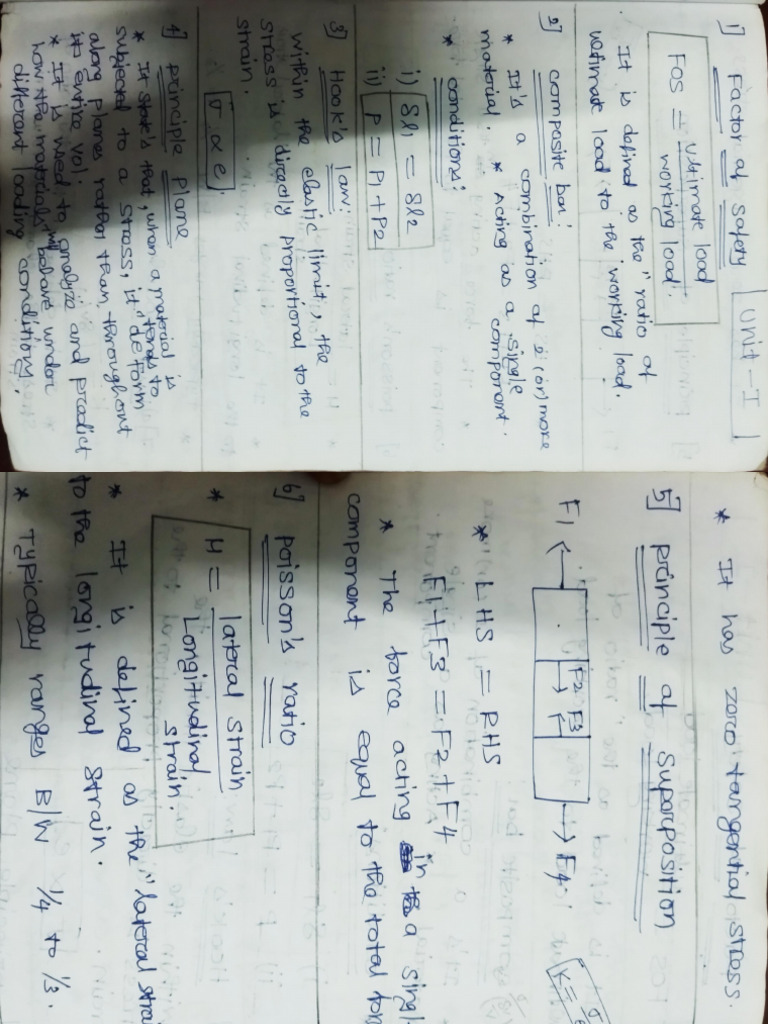 Unit - I
1] Factor of Safety
FOS = ultimate load
working load.
It is defined as the "ratio of
ultimate load to the working load.
2] composite bar:
* It's a combination of 2 (or) more
material. * Acting as a single
component.
* conditions:
i) Sl1 = Sl2
ii) P = P1 + P2
3] Hook's law:
within the elastic limit, the
stress is directly proportional to the
strain.
σ ∝ e
4] principle plane
* It state's that, when a material is
subjected to a stress, it "tends to deform
along planes rather than throughout
it's entire vol:
* It is used to analyze and predict
how the materials will behave under
different loading conditions.
* It has zero tangential stress.
5] principle of superposition
F1 F2 F3 F4
* LHS = RHS
F1 + F3 = F2 + F4
* The force acting in a single
component is equal to the total
6] poisson's ratio
* μ = lateral strain
Longitudinal
strain.
* It is defined as the "lateral
to the longitudinal strain.
* Typically ranges B/W 1/4 to 1/3.